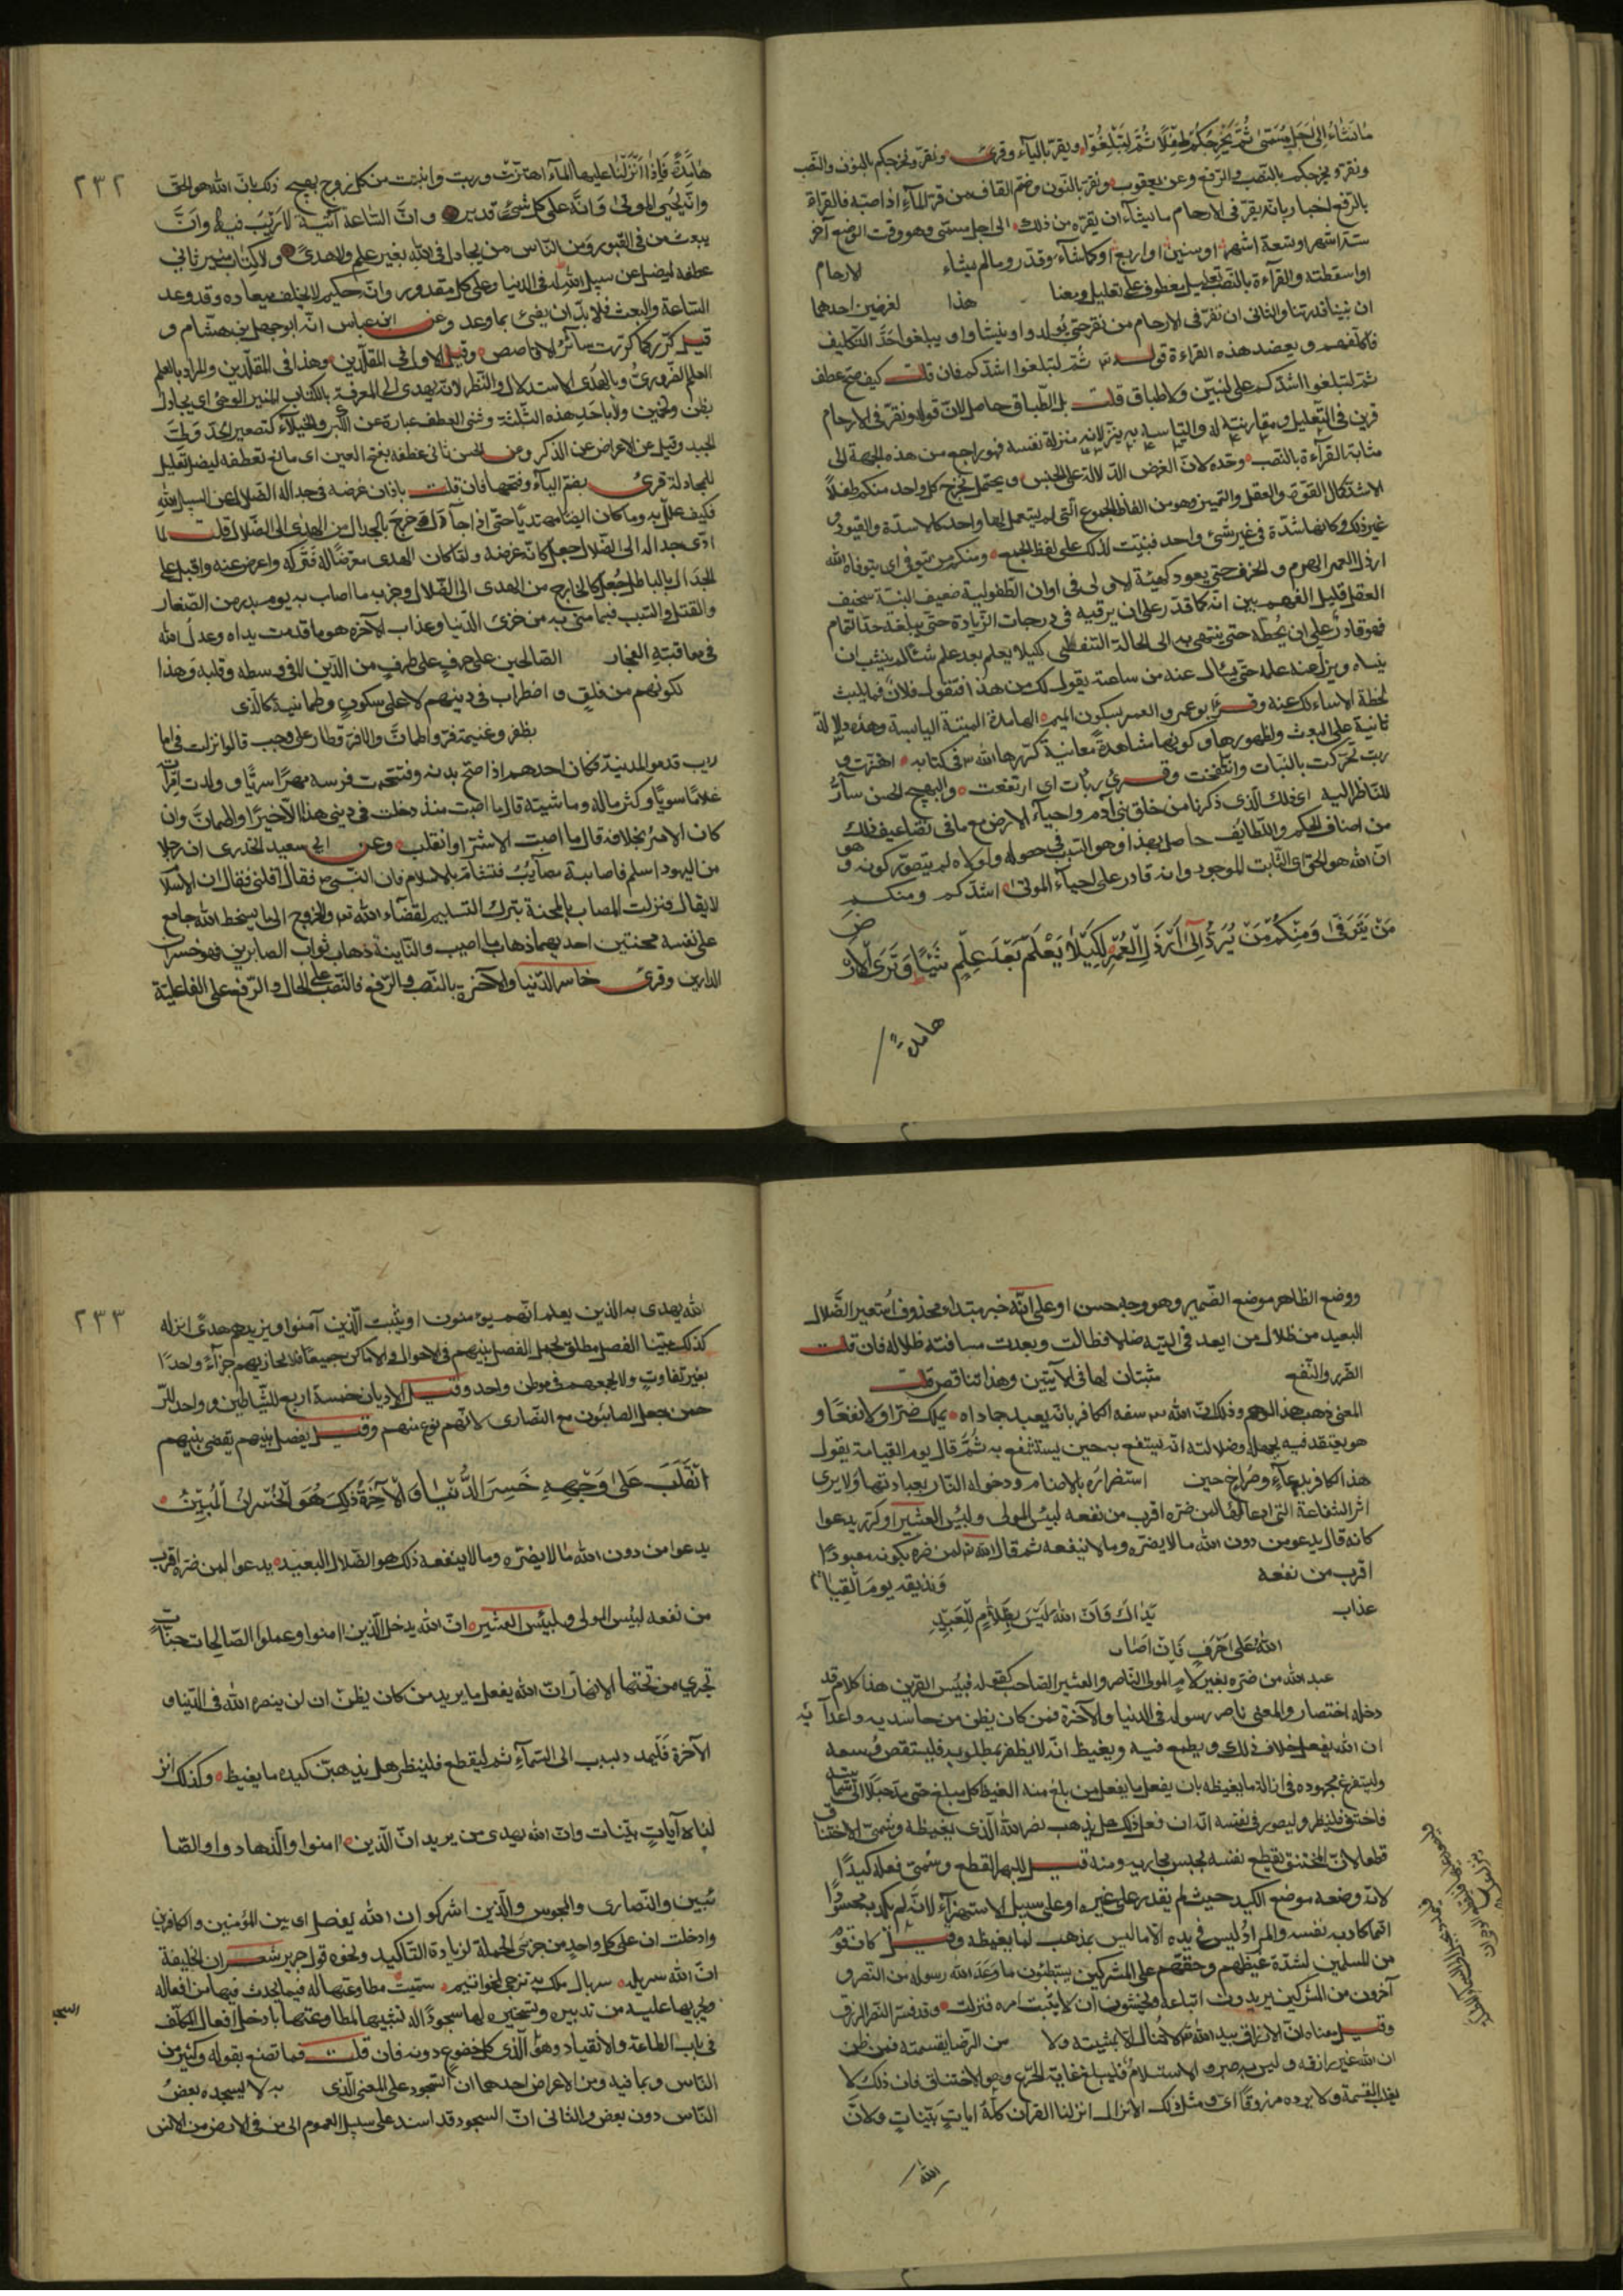 ما نشاء الى اجل مسمى ثم يخرجكم طفلا ثم لتبلغوا ويقر بالياء وقرئ ونقر ونخرجكم بالنون والنصب
ونقر ويخرجكم بالنصب والرفع وعن يعقوب ونقر بالنون وضم القاف من قر الماء اذا صبه فالقراة
بالرفع اخبار بانه يقر فى الارحام ما يشآء ان يقره من ذلك الى اجل مسمى وهو وقت الوضع آخر
ستة اشهر او تسعة اشهر او سنين او اربع او كما شآء وقدر وما لم يشاء لارحام
او اسقطته والقرآءة بالنصب تعليل معطوف على تعليل ومعنا هذا لغرضين احدهما
ان نبين قدرتنا والثانى ان نقر فى الارحام من نقر حتى يولدوا وينشاوا ويبلغوا حد التكليف
فاكلفهم ويعضد هذه القراءة قوله ثم لتبلغوا اشدكم فان قلت كيف صح عطف
ثم لتبلغوا اشدكم على لنبين ولا طباق قلت بل الطباق حاصل لان قوله ونقر فى الارحام
قرين فى التعليل ومقارنته له والتباسه به ينزلانه منزلة نفسه فهو راجع من هذه الجهة الى
مثابة القرآءة بالنصب وحده لان الغرض الدلالة على الجنس ويحتمل نخرج كل واحد منكم طفلا
الاشد كمال القوة والعقل والتمييز وهو من الفاظ الجموع التى لم يستعمل لها واحد كالاسدة والقيود و
غير ذلك وكانها شدة فى غير شئ واحد فبنيت لذلك على لفظ الجمع ومنكم من يتوفى اى يتوفاه الله
ارذل العمر الهرم والخرف حتى يعود كهيئة الاولى فى اوان الطفولية ضعيف البنية سخيف
العقل قليل الفهم بين انه كما قدر على ان يرقيه فى درجات الزيادة حتى يبلغه حد التمام
فهو قادر على ان يحطه حتى ينتهى به الى الحالة السفلى لكيلا يعلم بعد علم شئا لم ينشب ان
ينساه ويزل عنه علمه حتى يسال عنه من ساعته يقول لك من هذا فتقول فلان فما يلبث
لحظة الا سالك عنه وقرء ابو عمرو العمر بسكون الميم الهامدة الميتة اليابسة وهذه دلالة
ثانية على البعث ولظهورها وكونها مشاهدة معاينة كررها الله فى كتابه اهتزت و
ربت تحركت بالنبات وانتفخت وقرئ ربات اى ارتفعت والبهيج الحسن سآر
للناظر اليه اى ذلك الذى ذكرنا من خلق بنى آدم واحياء الارض مع ما فى تضاعيف ذلك
من اصناف الحكم واللطايف حاصل بهذا وهو السبب فى حصوله ولولاه لم يتصور كونه و هو
ان الله هو الحق اى الثابت الموجود وانه قادر على احيآء الموتى اشدكم ومنكم
من يتوفى ومنكم من يرد الى ارذل العمر لكيلا يعلم بعد علم شيئا وترى الارض
هامدة
٢٣٢
هامدة فاذا انزلنا عليها المآء اهتزت وربت وانبتت من كل زوج بهيج ذلك بان الله هو الحق
وانه يحيى الموتى وانه على كل شئ قدير وان الساعة آتية لا ريب فيها وان
يبعث من فى القبور ومن الناس من يجادل فى الله بغير علم ولا هدى ولا كتاب منير ثانى
عطفه ليضل عن سبيل الله له فى الدنيا وعلى كل مقدور وانه حكيم لا يخلف ميعاده وقد وعد
الساعة والبعث فلا بد ان يفى بما وعد وعن ابن عباس انه ابو جهل ابن هشام و
قيل كرر كما كررت سائر الاقاصيص وقيل الاول فى المقلدين وهذا فى المقلدين والمراد بالعلم
العلم الضرورى وبالهدى الاستدلال والنظر لانه يهدى الى المعرفة بالكتاب المنير الوحى اى يجادل
بظن وتخمين ولا باحد هذه الثلثة وثنى العطف عبارة عن الكبر والخيلآء كتصعير الخد ولى
الجيد وقيل عن الاعراض عن الذكر وعن الحسن ثانى عطفه بفتح العين اى مانع تعطفه ليضل تعليل
للمجادلة قرئ بضم اليآء وفتحها فان قلت باذان غرضه فى جداله الضلال عن السبيل الله
فكيف علل به وما كان ايضا مهتديا حتى اذا جادل خرج بالجدال من الهدى الى الضلال قلت لما
ادى جداله الى الضلال جعل كانه غرضه ولما كان الهدى معرضا له فتركه واعرض عنه واقبل على
الجدال بالباطل جعل كالخارج من الهدى الى الضلال وخزيه ما اصابه يوم بدر من الصغار
والقتل والسبب فيما منى به من خزى الدنيا وعذاب الآخرة هو ما قدمت يداه وعدل الله
فى معاقبته الفجار الصالحين على حرف على طرف من الدين لا فى وسطه وقلبه وهذا
لكونهم من قلق واضطراب فى دينهم لا على سكون وطمانينة كالذى
بظفر وغنيمة قر واطمان والا فر وطار على وجهه قالوا نزلت فى اعا
ريب قدموا المدينة فكان احدهم اذا صح بدنه ونتجت فرسه مهرا سريا وولدت امراته
غلاما سويا وكثر ماله وماشيته قال ما اصبت منذ دخلت فى دينى هذا الا خيرا واطمان وان
كان الامر بخلافه قال ما اصبت الا شرا وانقلب وعن ابى سعيد الخدرى ان رجلا
من اليهود اسلم فاصابته مصائب فتشام بالاسلام فاتى النبى فقال اقلنى فقال ان الاسلا
لا يقال فنزلت المصاب بالمحنة بترك التسليم لقضآء الله والخروج الى ما يسخط الله جامع
على نفسه محنتين احديهما ذهاب ما اصيب والثانية ذهاب ثواب الصابرين فهو خسر
الدارين وقرئ خاسر الدنيا والآخرة بالنصب والرفع فالنصب على الحال والرفع على الفاعلية
ووضع الظاهر موضع الضمير وهو وجه حسن او على انه خبر مبتداء محذوف استعير الضلال
البعيد من ضلال من ابعد فى التيه ضالا فطالت وبعدت مسافة ضلاله فان قلت
الضرر والنفع مثبتان لها فى الآيتين وهذا تناقض قلت
المعنى ذهب هذا الوهم وذلك ان الله سفه الكافر بانه يعبد جمادا يملك ضرا ولا نفعا و
هو يعتقد فيه بجهله وضلالته انه ينتفع به حين يستشفع به ثم قال يوم القيامة يقول
هذا الكافر بدعآء وصراخ حين استضراره بالاصنام ودخوله النار بعبادتها ولا يرى
اثر الشفاعة التى ادعاها لها لمن ضره اقرب من نفعه لبئس المولى ولبئس العشير او كرر يدعوا
كانه قال يدعوا من دون الله ما لا يضره وما لا ينفعه ثم قال لمن ضره بكونه معبودا
اقرب من نفعه ونذيقه يوم القيامة
عذاب يداك وان الله ليس بظلام للعبيد
الله على حرف فان اصاب
عبد الله من ضره بغير لام المولى الناصر والعشير الصاحب كقوله فبئس القرين هذا كلام قد
دخله اختصار والمعنى ناصر رسوله فى الدنيا والآخرة فمن كان يظن من حاسديه واعدا يه
ان الله يفعل خلاف ذلك ويطمع فيه ويغيظ انه لا يظفر بمطلوبه فليستقص وسعه
وليستفرغ مجهوده فى ازالة ما يغيظه بان يفعل ما يفعل من بلغ منه الغيظ كل مبلغ حتى مد حبلا الى سما بيته
فاختنق فلينظر وليصور فى نفسه انه ان فعل ذلك هل يذهب نصر الله الذى يغيظه وسمى الاختنا ق
قطعا لان المختنق يقطع نفسه بحبس مجاريه ومنه قيل للبهر القطع وسمى فعله كيدا
لانه وضعه موضع الكيد حيث لم يقدر على غيره او على سبيل الاستهزآء لانه لم يكد به محسودا
انما كاد به نفسه والمراد ليس فى يده الا ما ليس بمذهب لما يغيظه وقيل كان قوم
من المسلمين لشدة غيظهم وحنقهم على المشركين يستبطئون ما وعد الله رسوله من النصر و
آخرون من المشركين يريدون اتباعه ويخشون ان لا يثبت امره فنزلت وقد فسر النصر الرزق
وقيل معناه ان الارزاق بيد الله لا تنال الا بمشيته ولا من الرضا بقسمته فمن ظن
ان الله غير رازقه وليس به صبر والاستسلام فليبلغ غاية الجزع وهو الاختناق فان ذلك لا
يغلب القسمة ولا يرده مرزوقا اى ومثل ذلك الانزال انزلنا القرآن كله ايات بينات ولان
الله
٢٣٣
الله يهدى به الذين يعلم انهم يؤمنون او يثبت الذين آمنوا ويزيدهم هدى انزله
كذلك مبينا الفصل مطلق يحتمل الفصل بينهم فى الاحوال والاماكن جميعا فلا يجازيهم جزآء واحدا
بغير تفاوت ولا يجمعهم فى موطن واحد وقيل الاديان خمسة اربعة للشياطين وواحد للر
حمن جعل الصابئون مع النصارى لانهم نوع منهم وقيل يفصل بينهم يقضى بينهم
انقلب على وجهه خسر الدنيا والآخرة ذلك هو الخسران المبين
يدعوا من دون الله ما لا يضره وما لا ينفعه ذلك هو الضلال البعيد يدعوا لمن ضره اقرب
من نفعه لبئس المولى ولبئس العشير ان الله يدخل الذين امنوا وعملوا الصالحات جنات
تجرى من تحتها الانهار ان الله يفعل ما يريد من كان يظن ان لن ينصره الله فى الدنيا و
الآخرة فليمدد بسبب الى السمآء ثم ليقطع فلينظر هل يذهبن كيده ما يغيظ وكذلك انز
لناه آيات بينات وان الله يهدى من يريد ان الذين امنوا والذين هادوا والصا
بئين والنصارى والمجوس والذين اشركوا ان الله يفصل اى بين المؤمنين والكافرين
وادخلت ان على كل واحد من جزئى الجملة لزيادة التاكيد ونحوه قول جرير شعر ان الخليفة
ان الله سربله سربال ملك به ترجى الخواتيم سميت مطاوعتها له فيما يحدث فيها من افعاله
ويجريها عليه من تدبيره وتسخيره لها سجودا له تشبيها لمطاوعتها بادخل افعال المكلف
فى باب الطاعة والانقياد وهو الذى كل خضوع دونه فان قلت فما تصنع بقوله وكثير من
الناس وبما فيه من الاعراض احدهما ان السجود على المعنى الذى به لا يسجده بعض
الناس دون بعض والثانى ان السجود قد اسند على سبيل العموم الى من فى الارض من الانس